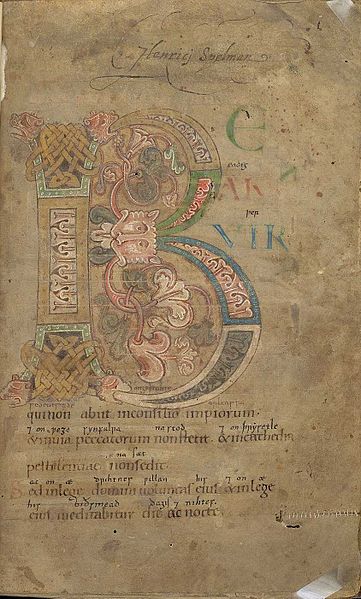 Henrici Spelman
B E
eadig
wer
VIR
quinon abiit inconsilio impiorum.
7 on wege synfulra ne stod 7 on
&inuia peccatorum nonstetit. &incathedra
ne sæt
pestilentiae nonsedit.
ac on æ drihtnes willan his 7 on æ
Sed inlege domini uoluntas eius &inlege
his 7 nihtes
eius meditabitur die ac nocte.